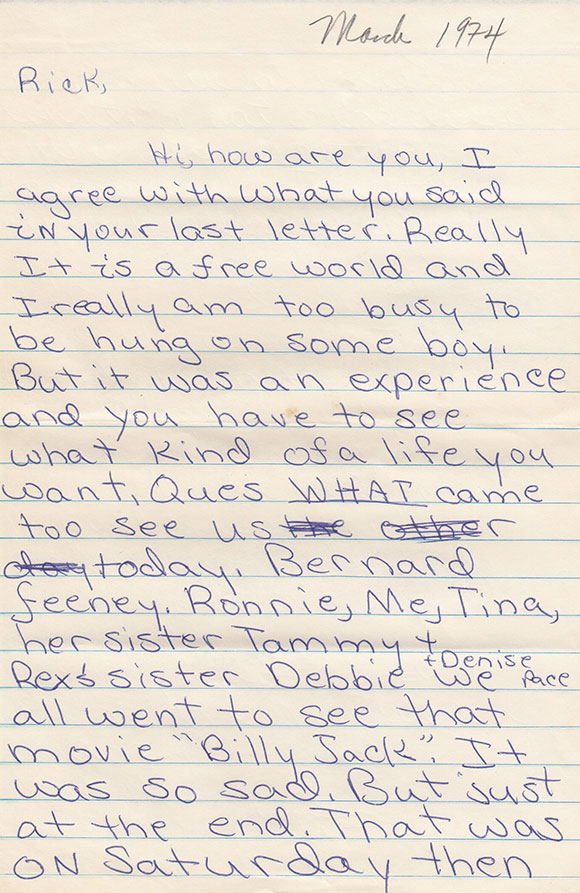 March 1974
Rick,
Hi, how are you, I
agree with what you said
in your last letter. Really
It is a free world and
I really am too busy to
be hung on some boy.
But it was an experience
and you have to see
what kind of a life you
want. Ques WHAT came
too see us the other
day today. Bernard
feeney. Ronnie, Me, Tina,
her sister Tammy +
+ Denise Pace
Rex's sister Debbie we
all went to see that
movie "Billy Jack". It
was so sad. But just
at the end. That was
ON Saturday then